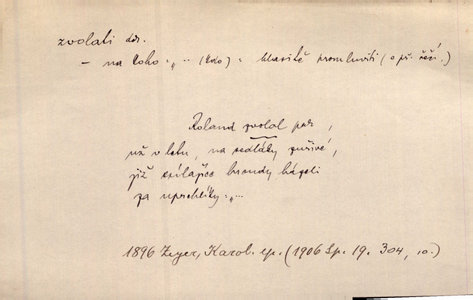 zvolati dk.
– na koho: „ ·· (kdo) = hlasitě promluviti (o př. řeči.)
Roland zvolal pak,
už v letu, na sedláky zuřivé,
již sršlajíce hroudy házeli
za uprchlíky: „ ···
1896 Zeyer, Karol. ep. (1906 Sp. 19. 304, 10.)